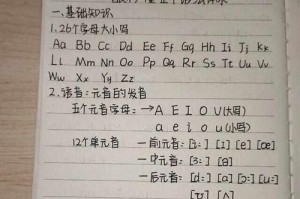 一、基础知识
1.26个字母大小写
Aa Bb Cc Dd Ee Ff Gg Hh Ii Jj Kk
Ll Mm Nn Oo Pp Qq Rr Ss Tt Uu Vv
Ww Xx Yy Zz
2.语音:元音的发音
五个元音字母:→A E I O U(大写)
a e i o u(小写)
12个单元音 — 前元音:[i:] [ɪ] [e] [æ]
—中元音:[ɜ:] [ə]
—后元音:[ɑ:] [ɒ] [ɔ:] [u:]
[ʊ] [ʌ]